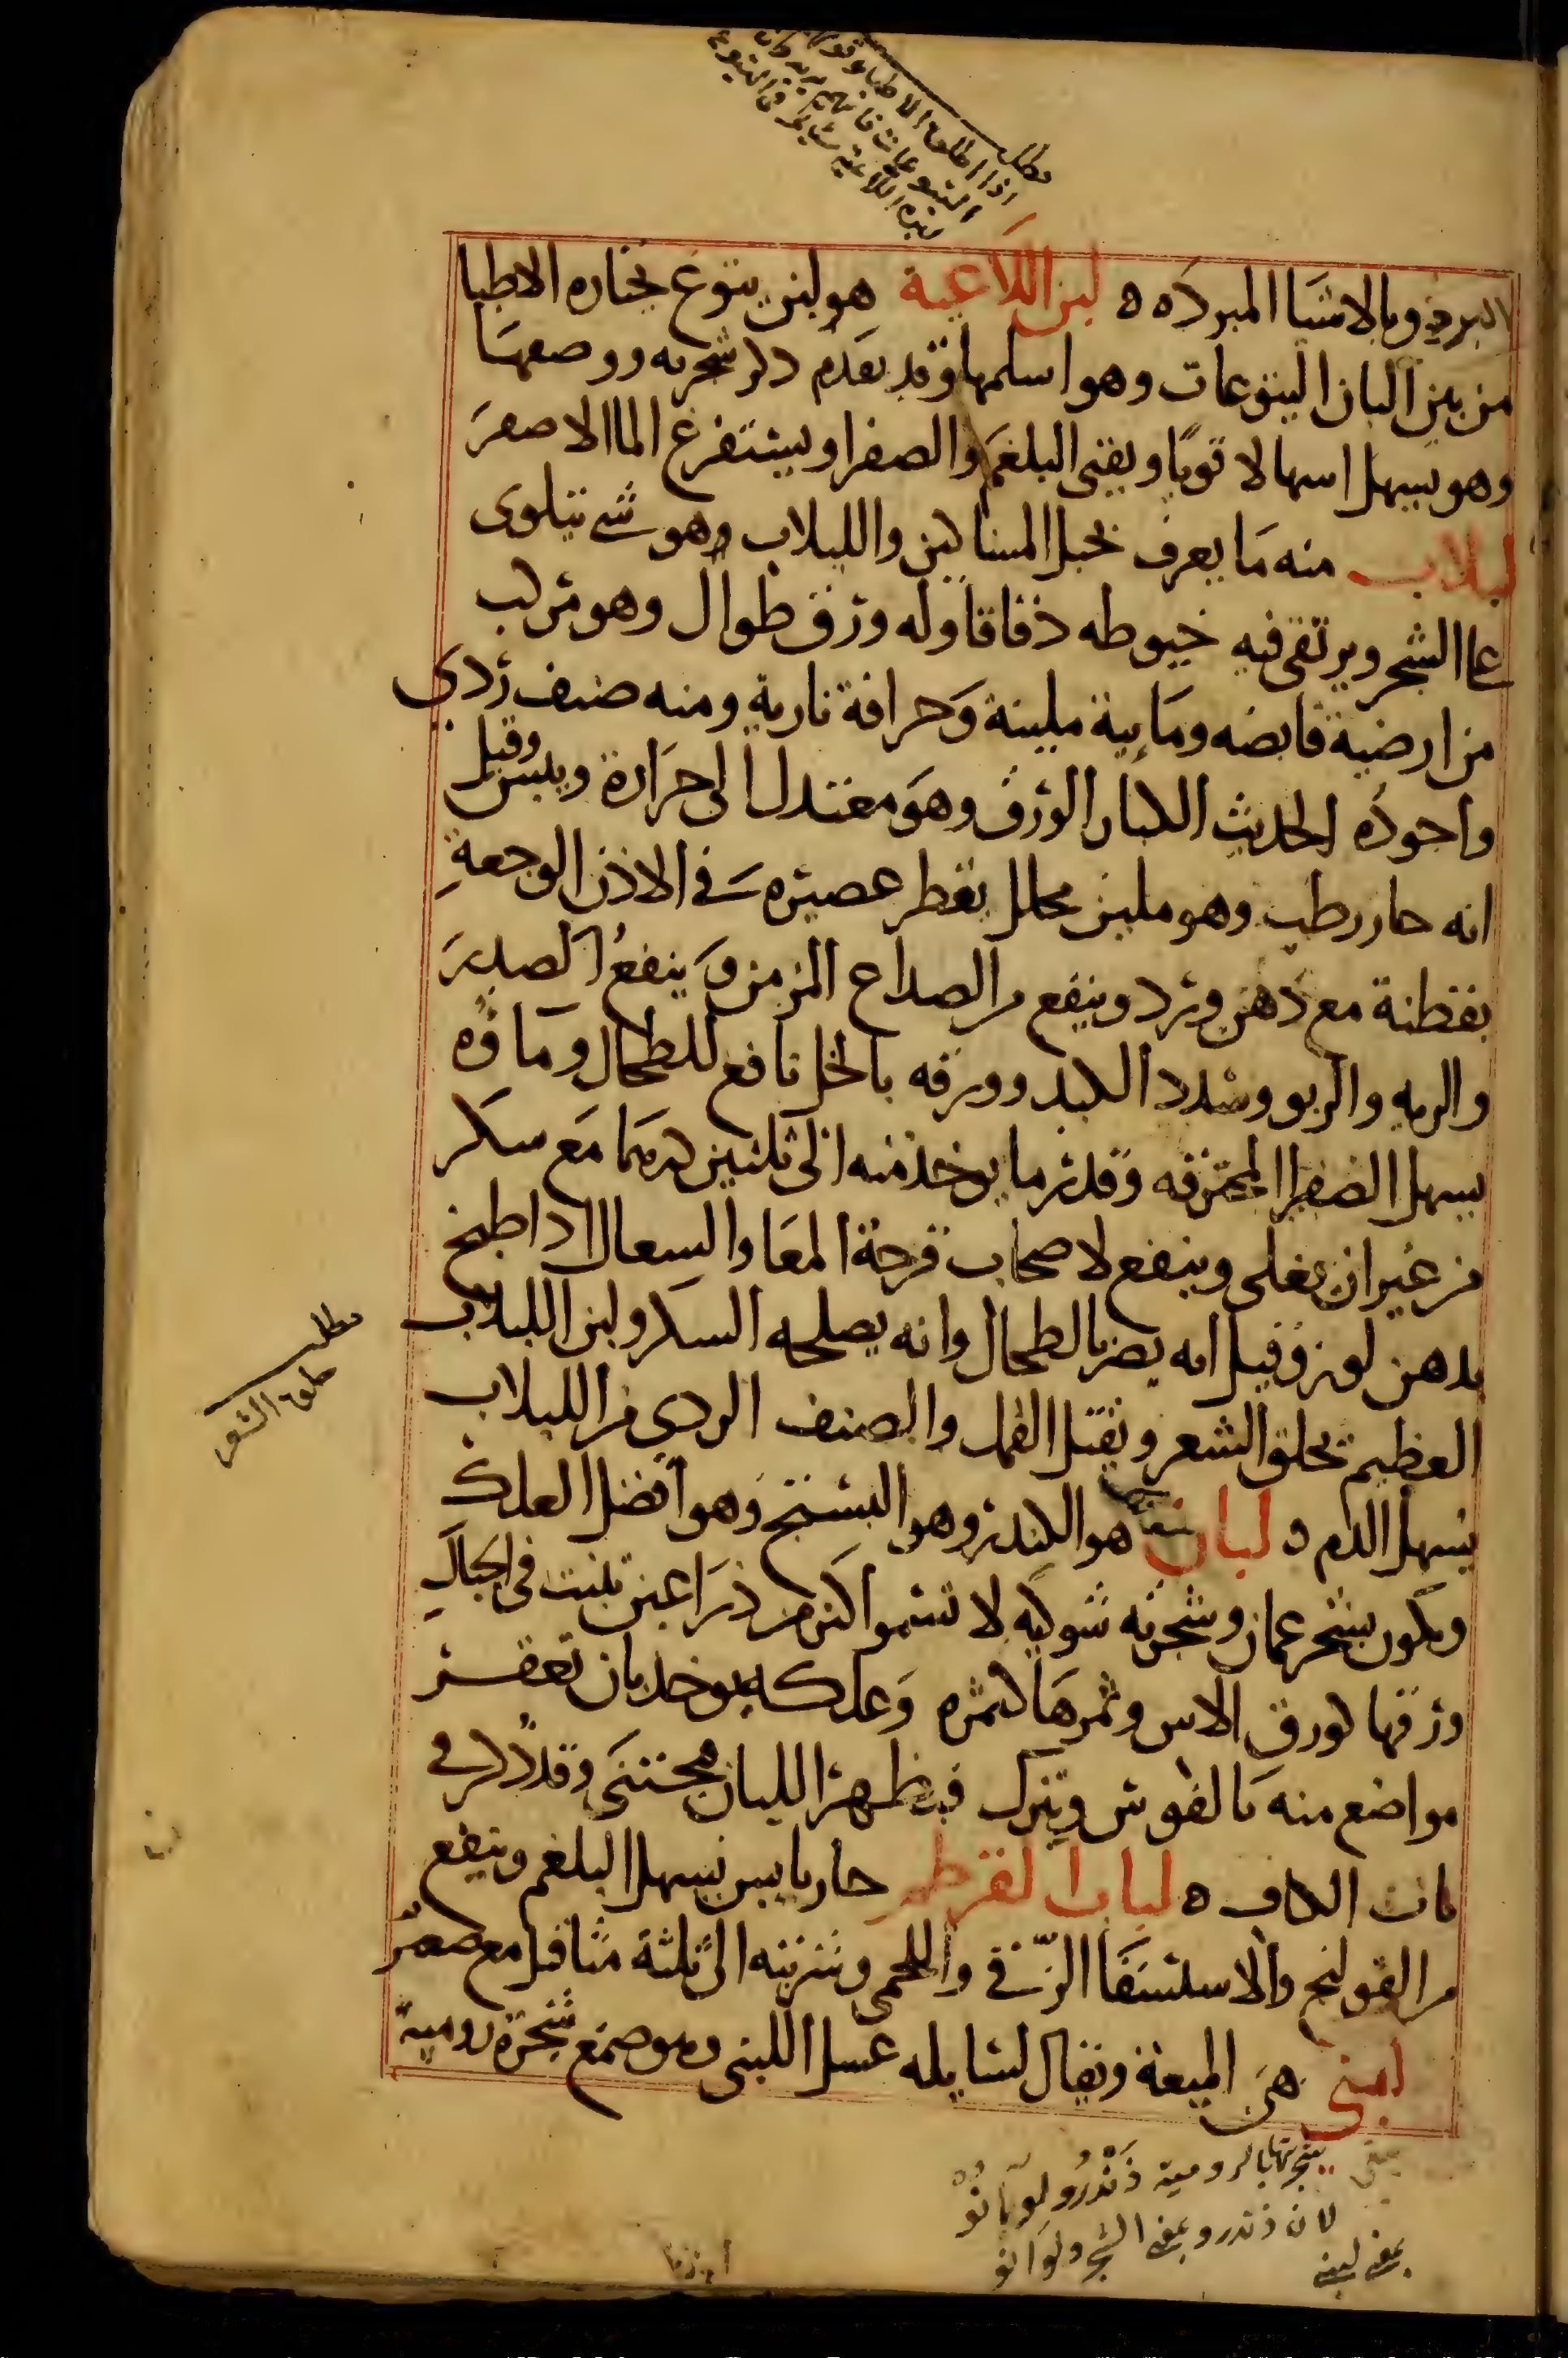 مطلب
اذا اطلق الاطبا
اليتوعات فانهم يريدون
هذه اللاعية
البرد وبالاشيا المبرده ه لبن اللاعية هو لبن يتوع يختاره الاطبا
من بين البان اليتوعات وهو اسلمها وقد تقدم ذكر شجرته ووصفها
وهو يسهل اسهالا قويا ويقيى البلغم والصفرا ويستفرغ الما الاصفر
لبلاب منه ما يعرف بحبل المساكين واللبلاب وهو شي يتلوى
على الشجر ويرتقى فيه خيوطه دقاقا وله ورق طوال وهو مركب
من ارضية قابضه ومايية ملينة وحرافة نارية ومنه صنف ردي
واجوده الحديث الكبار الورق وهو معتدل الى حرارة ويبس وقيل
انه حار رطب وهو ملين محلل يقطر عصيره في الاذن الوجعة
بقطنة مع دهن ورد وينفع من الصداع المزمن وينفع الصدر
والريه والربو وسدد الكبد وورقه بالخل نافع للطحال وماؤه
يسهل الصفرا المحترقه وقدر ما يوخذ منه الى ثلثين درهما مع سكر
من غير ان يغلى وينفع لاصحاب قرحة المعا والسعال اذا طبخ
بدهن لوز وقيل انه يضر بالطحال وانه يصلحه السكر ولبن اللبلاب
العظيم يحلق الشعر ويقتل القمل والصنف الردي من اللبلاب
يسهل الدم ه لبان هو الكندر وهو البستج وهو افضل العلك
ويكون بشحر عمان وشجرته شوكيه لا تنموا اكثر من ذراعين تنبت في الجبال
ورقها كورق الاس وثمرها كثمره وعلكه يوخذ بان تعقر
مواضع منه بالفوس ويترك فيظهر اللبان فيجتنى وقد ذكر في
باب الكاف ه لباب القرطم حار يابس يسهل البلغم وينفع
من القولنج والاستسقا الزقي واللحمى وشربته الى ثلثة مثاقيل مع صعتر
لبنى هى الميعة ويقال لسايله عسل اللبنى وهو صمغ شجرة رومية
مطلب
حلق الشعر
يعنى شجرتها بالرومية دندرو لوبانو
لان دندرو بمعنى الشجر ولوبانو
بمعنى لبنى